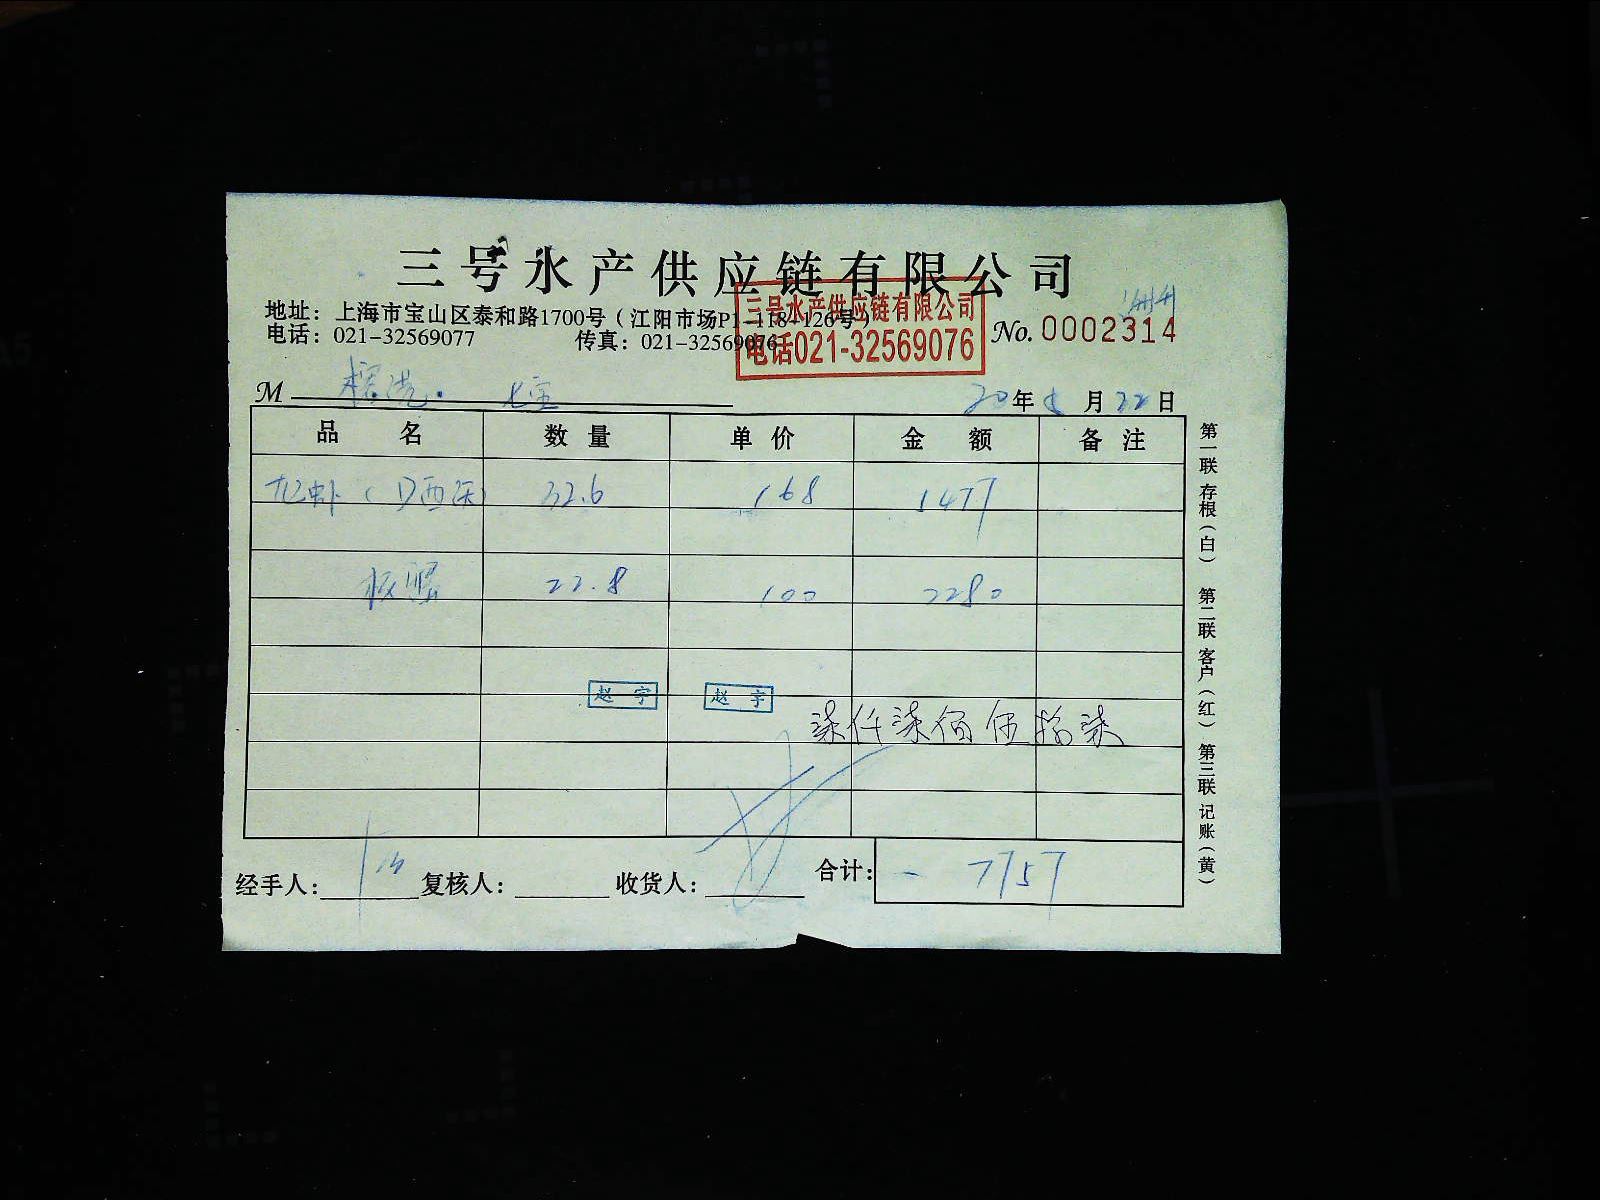 三号水产供应链有限公司
地址：上海市宝山区泰和路1700号（江阳市场P1-118-126号）
电话：021-32569077 传真：021-32569076
三号水产供应链有限公司
电话021-32569076
No. 0002314
M 七宝
20年8月22日
品 名 数 量 单 价 金 额 备 注
龙虾（ 32.6 168 1477
板蟹 22.8 100 2280
赵 宇 赵 宇
柒仟柒佰伍拾柒
经手人： 复核人： 收货人： 合计： 7757
第一联 存根（白） 第二联 客户（红） 第三联 记账（黄）